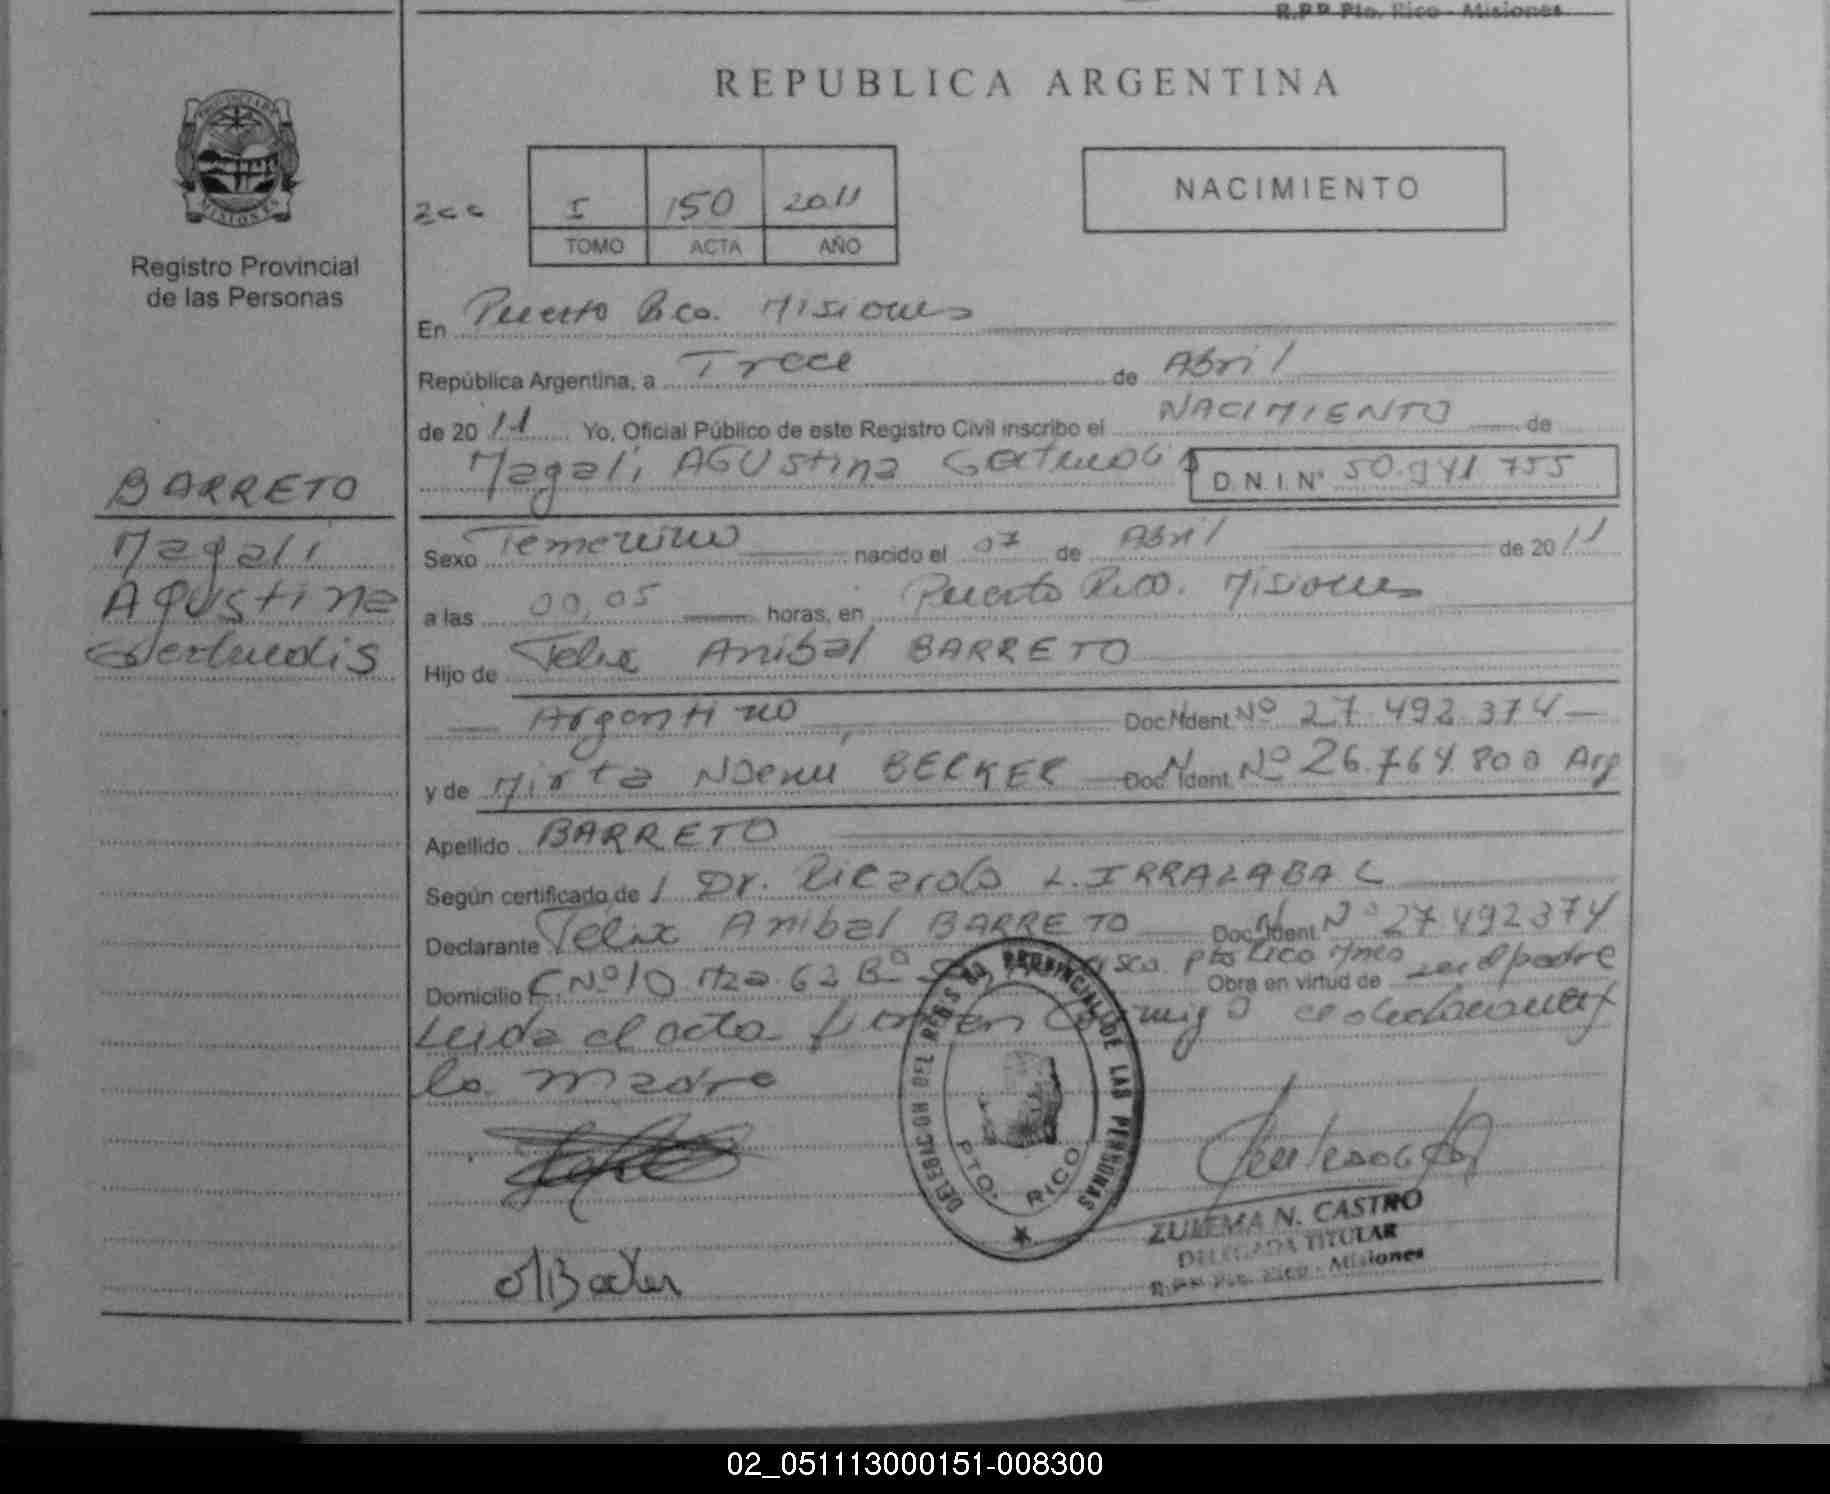 R.P.P. Pto. Rico - Misiones
REPUBLICA ARGENTINA
MISIONES
Registro Provincial
de las Personas
I 150 2011
TOMO ACTA AÑO
NACIMIENTO
En Puerto Rico. Misiones
República Argentina, a Trece de Abril
de 2011 Yo, Oficial Público de este Registro Civil inscribo el NACIMIENTO de
Magali AGUStina Gertrudis D.N.I.Nº 50.941 755
BARRETO
Magali
Agustina
Gertrudis
Sexo Femenino nacido el 07 de Abril de 2011
a las 00,05 horas, en Puerto Rico. Misiones
Hijo de Felix Anibal BARRETO
Argentino Doc. Ident. Nº 27.492.374
y de Mirta Noemi BECKER Doc. Ident. Nº 26.764.800 Arg
Apellido BARRETO
Según certificado de Dr. Ricardo L. IRRAZABAL
Declarante Felix Anibal BARRETO Doc. Ident Nº 27492374
Domicilio C Nº 10 Mza. 62 Bº Pto Rico Mnes Obra en virtud de ser el padre
Leida el acta firman conmigo el declarante y
la madre
DELEGACION DEL REGISTRO PROVINCIAL DE LAS PERSONAS
PTO. RICO
MBecker
ZULEMA N. CASTRO
DELEGADA TITULAR
R.P.P. Pto. Rico - Misiones
02_051113000151-008300